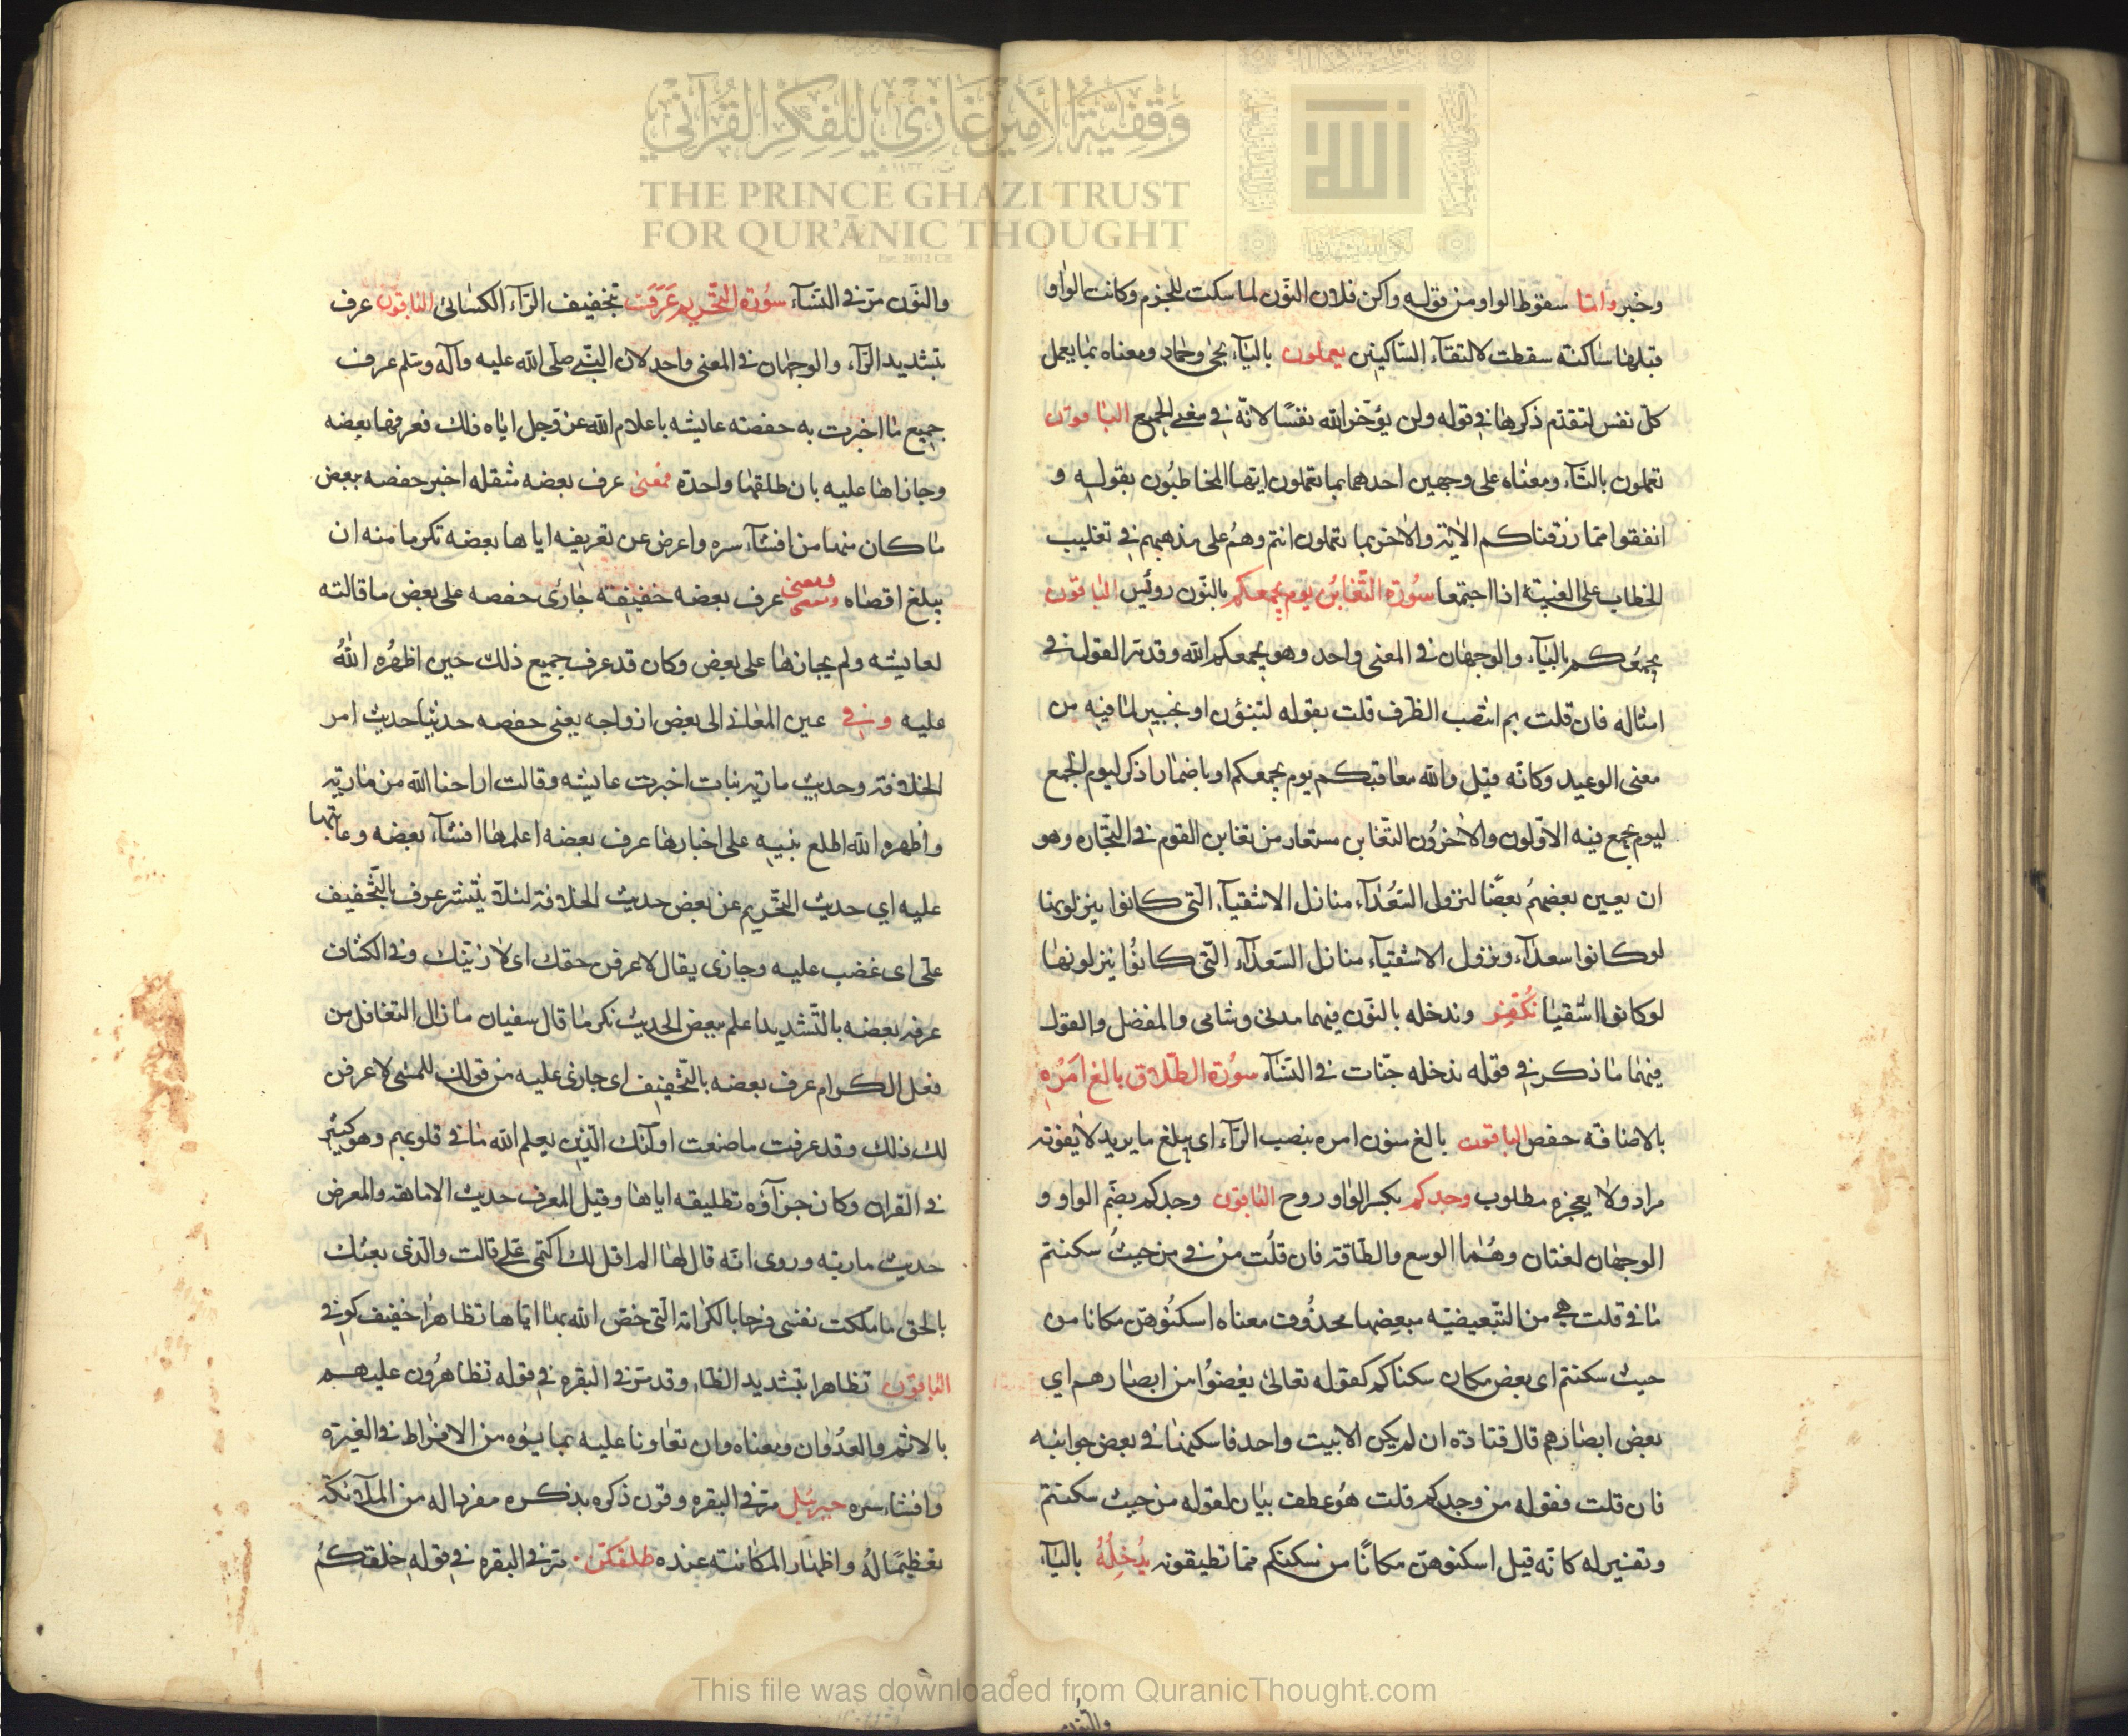 وخبر واما سقوط الواو من قوله واكن فلان النّون لما سكت للجزم وكانت الواو
قبلها ساكنة سقطت لالتقاء الساكنين يعملون بالياء يحيى وحماد ومعناه بما يعمل
كل نفس لتقدم ذكرها في قوله ولن يؤخر الله نفسًا لانّه في معنى الجمع الباقون
تعملون بالتاء ومعناه على وجهين احدهما بما تعملون ايها المخاطبون بقوله و
انفقوا مما رزقناكم الاية والاخر بما تعملون انتم وهم على مذهبهم في تغليب
الخطاب على الغيبة اذا اجتمعا سورة التغابن يوم يجمعكم بالنّون رويس الباقون
يجمعكم بالياء والوجهان في المعنى واحد وهو يجمعكم الله وقد مر القول في
امثاله فان قلت بم انتصب الظرف قلت بقوله لتنبؤن او بخبير لما فيه من
معنى الوعيد وكانه قيل والله معاقبكم يوم يجمعكم او باضمار اذكر ليوم الجمع
ليوم يجمع فيه الاولون والاخرون التغابن مستعار من تغابن القوم في التجاره وهو
ان يغبن بعضهم بعضًا لنزول السعداء منازل الاشقياء التي كانوا ينزلونها
لو كانوا سعداء ونزول الاشقياء منازل السعداء التي كانوا ينزلونها
لو كانوا اشقيا نكفر وندخله بالنون فيهما مدني وشامي والمفضل والقول
فيهما ما ذكر في قوله ندخله جنات في النساء سورة الطلاق بالغ امره
بالاضافة حفص الباقون بالغ منون امره بنصب الراء اى يبلغ ما يريد لا يفوته
مراد ولا يعجزه مطلوب وجدكم بكسر الواو روح الباقون وجدكم بضم الواو و
الوجهان لغتان وهما الوسع والطاقة فان قلت من في من حيث سكنتم
ما في قلت هي من التبعيضيه مبعضها محذوف معناه اسكنوهن مكانا من
حيث سكنتم اى بعض مكان سكناكم كقوله تعالى يغضوا من ابصارهم اي
بعض ابصارهم قال قتادة ان لم يكن الا بيت واحد فاسكنها في بعض جوانبه
فان قلت فقوله من وجدكم قلت هو عطف بيان لقوله من حيث سكنتم
وتفسير له كانه قيل اسكنوهن مكانًا من سكنكم مما تطيقونه يُدخِلْهُ بالياء
والنون
والنّون مر في النساء سورة التحريم عَرَفَ بتخفيف الراء الكسائى الباقون عرف
بتشديد الراء والوجهان في المعنى واحد لان النبي صلى الله عليه وآله وسلم عرف
جميع ما اخبرت به حفصه عايشه باعلام الله عز وجل اياه ذلك فعرفها بعضه
وجازاها عليه بان طلقها واحدة فمعنى عرف بعضه مثقله اخبر حفصه ببعض
ما كان منها من افشاء سره واعرض عن تعريفه اياها بعضه تكرما منه ان
يبلغ اقصاه ومعنى عرف بعضه خفيفة جازى حفصه على بعض ما قالته
لعايشه ولم يجازها على بعض وكان قد عرف جميع ذلك حين اظهره الله
عليه وفي عين المعاني الى بعض ازواجه يعني حفصه حديثا حديث امر
الخلافة وحديث مارية نبات اخبرت عايشه وقالت اراحنا الله من مارية
واظهره الله اطلع نبيه على اخبارها عرف بعضه اعلمها افشاء بعضه وعاتبها
عليه اي حديث التحريم عن بعض حديث الخلافة لئلا ينتشر عرف بالتخفيف
على اى غضب عليه وجازى يقال لاعرفن حقك اى لازينك وفي الكشاف
عرف بعضه بالتشديد اعلم ببعض الحديث تكرما قال سفيان ما زال التغافل من
فعل الكرام عرف بعضه بالتخفيف اى جازى عليه من قولك للمسى لاعرفن
لك ذلك وقد عرفت ما صنعت اولئك الذين يعلم الله ما في قلوبهم وهو كثير
في القران وكان جزآؤه تطليقه اياها وقيل المعرف حديث الامامة والمعرض
حديث مارية وروى انه قال لها الم اقل لك اكتمى على قالت والذى بعثك
بالحق ما ملكت نفسى فرحا بالكرامة التى خص الله بها اباها تظاهرا خفيف كوفي
الباقون تظاهرا بتشديد الظاء وقد مر في البقره في قوله تظاهرون عليهم
بالاثم والعدوان ومعناه وان تعاونا عليه بما يسوه من الافراط في الغيرة
وافشاء سره جبرئيل مر في البقره وقرن ذكره بذكره مفردا له من الملائكة
تعظيمًا لهُ واظهار المكانته عنده طلقكن مر في البقره في قوله خلقكم
وقفية الأمير غازي للفكر القرآني
THE PRINCE GHAZI TRUST
FOR QUR'ĀNIC THOUGHT
Est. 2012 CE
الله
This file was downloaded from QuranicThought.com